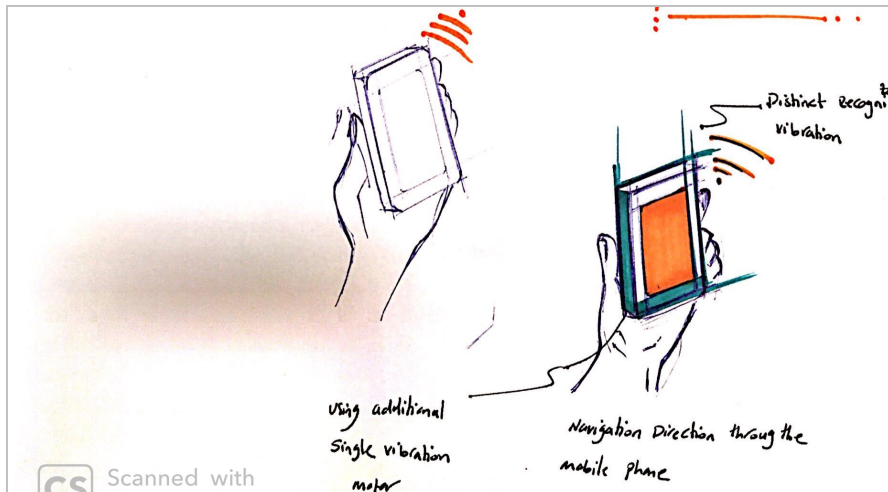 Distinct Recogni
vibration
using additional
Single vibration
motor
Navigation Direction throug the
mobile phone
CS Scanned with